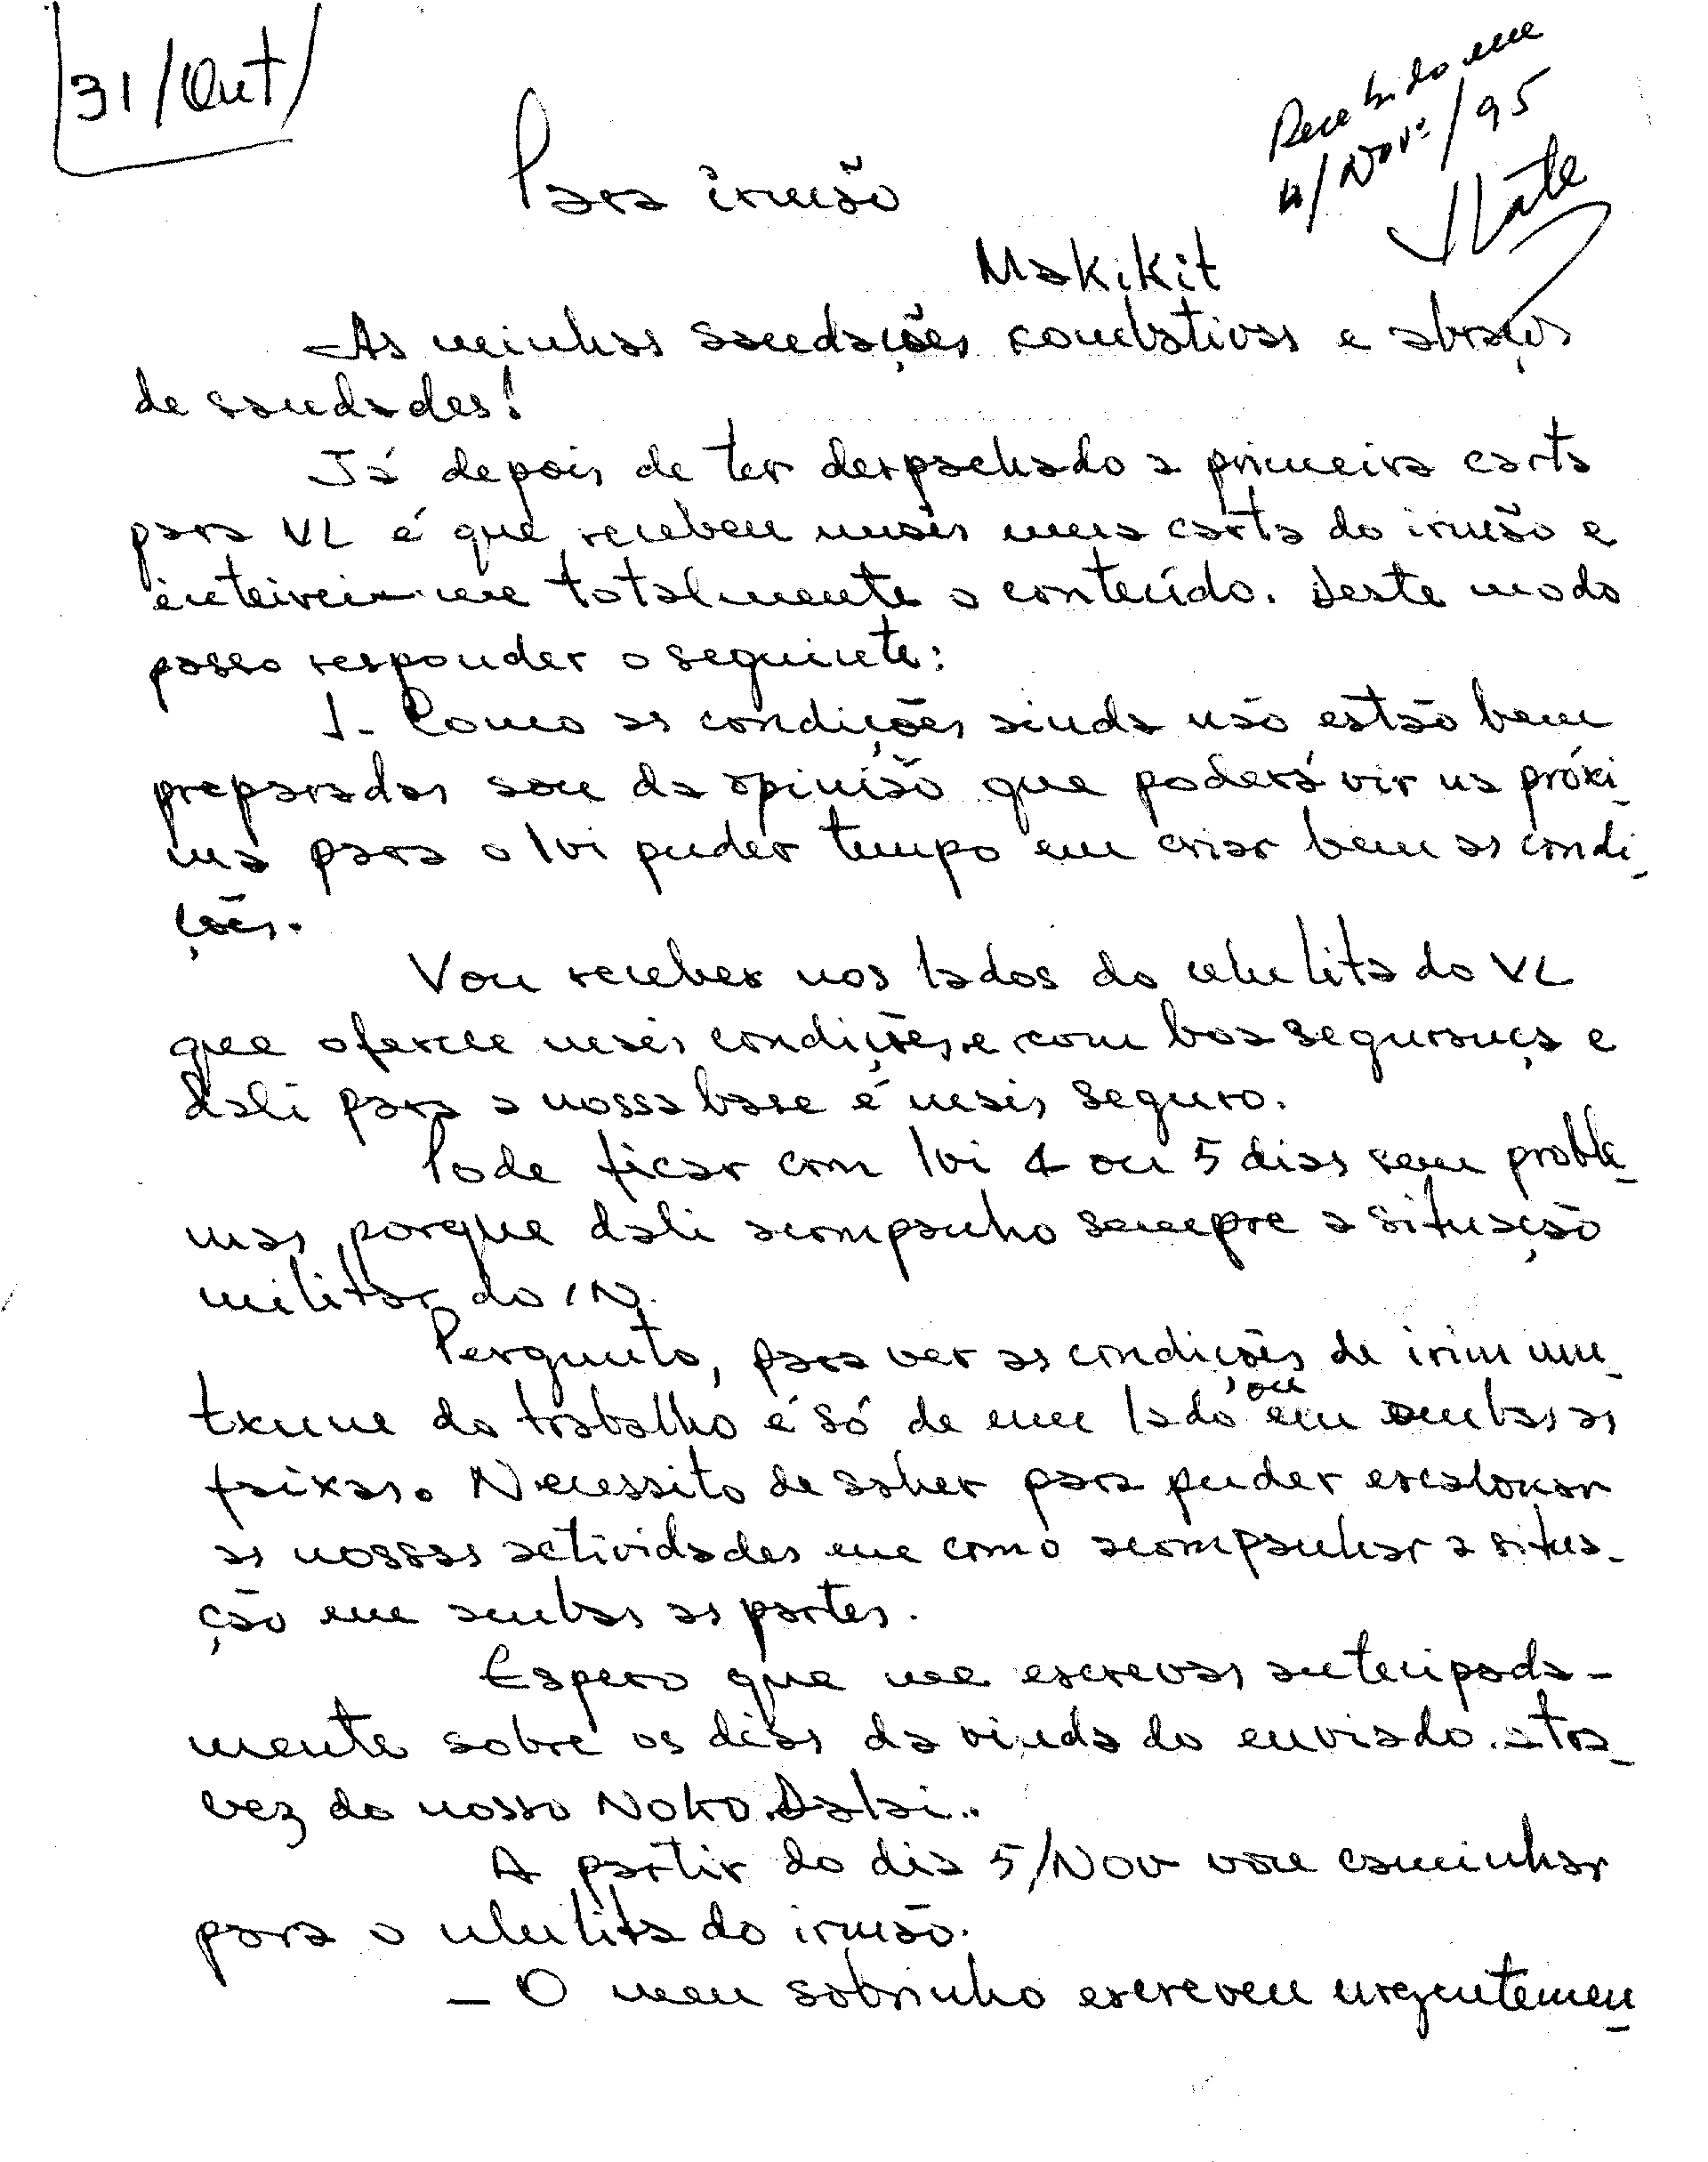 31/Out
Recebido em
11/Nov./95
Para irmão
Makikit
As minhas saudações combativas e abraços
de saudades!
Já depois de ter derpachado a primeira carta
para VL é que recebeu mais uma carta do irmão e
inteirei-me totalmente o conteúdo. Deste modo
passo responder o seguinte:
1- Como as condições ainda não estão bem
preparadas sou da opinião que poderá vir na próxi-
ma para o lvi puder tempo em criar bem as condi-
ções.
Vou receber nos lados do ululita do VL
que oferece mais condições e com boa segurança e
dali para a nossa base é mais seguro.
Pode ficar com lvi 4 ou 5 dias sem proble-
mas porque dali acompanho sempre a situação
militar do IN.
Pergunto, para ver as condições de
do trabalho é só de um lado ou em ambas as
faixas. Necessito de saber para puder escalonar
as nossas actividades em como acompanhar a situa-
ção em ambas as partes.
Espero que me escrevas antecipada-
mente sobre os dias da vinda do enviado atra-
vez do nosso Noko Dalai..
A partir do dia 5/Nov vou caminhar
para o ululita do irmão.
- O meu sobrinho escreveu urgentemen-